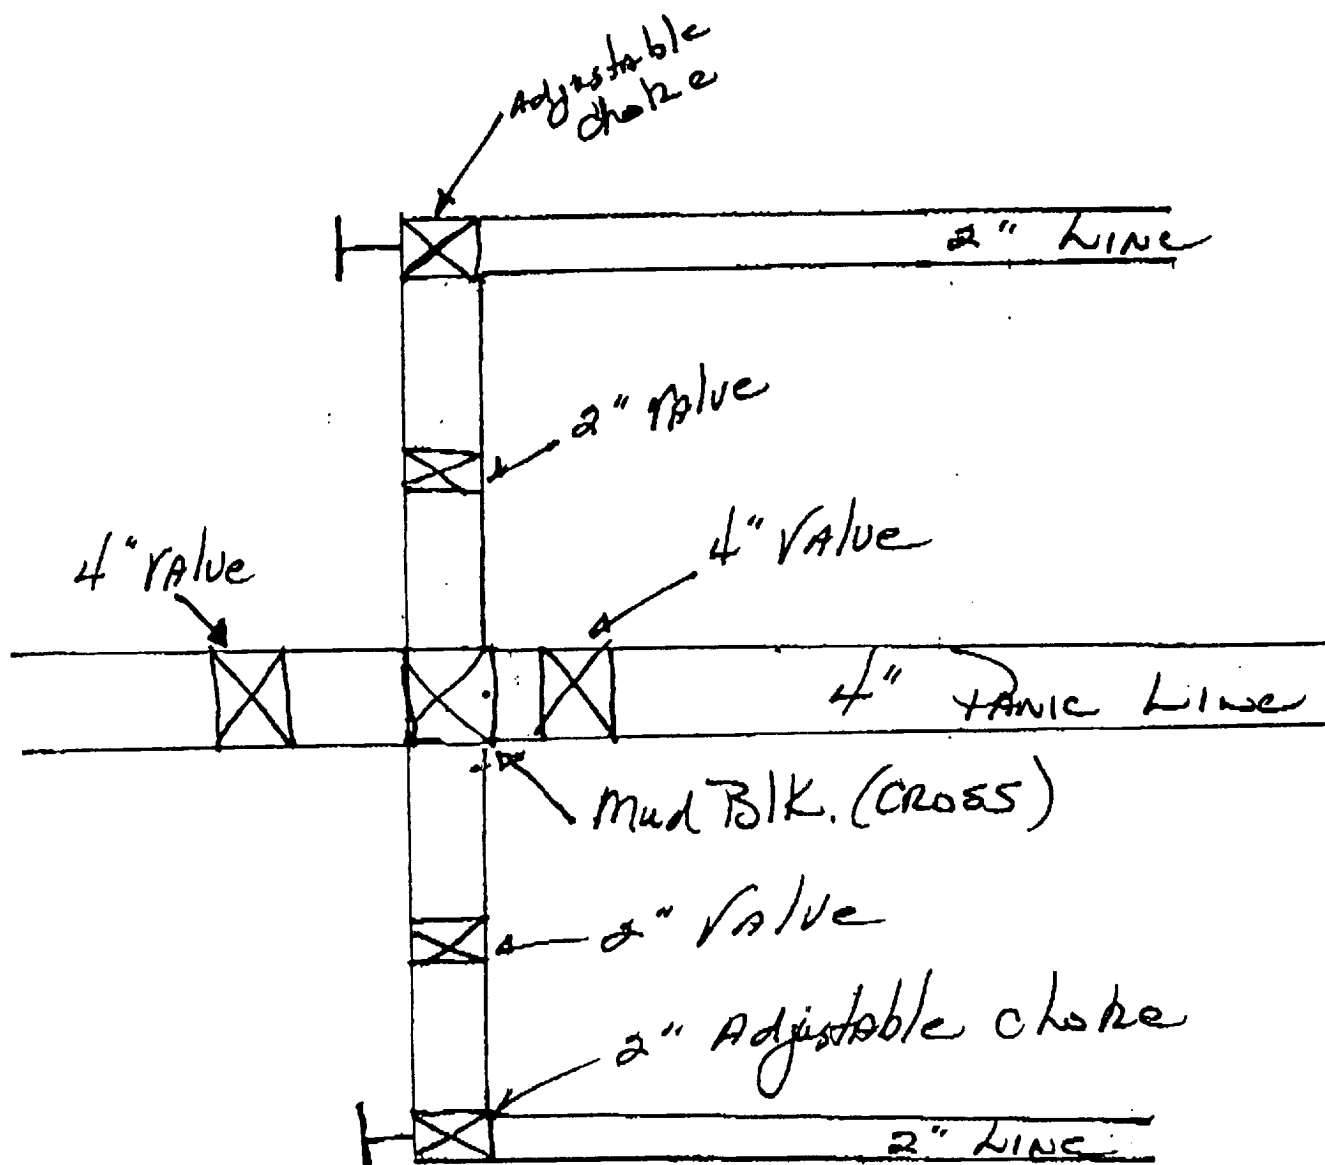 Adjustable
choke
2" LINE
2" VAlve
4" VAlve
4" VAlve
4" TANK LINE
Mud Blk. (CROSS)
2" VAlve
2" Adjustable choke
2" LINE